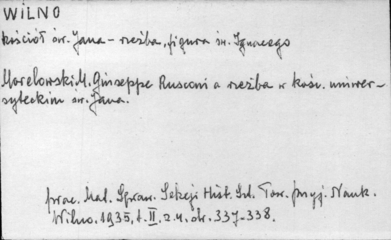 WILNO
kościół św. Jana – rzeźba, figura św. Ignacego
Morelowski M. Giuseppe Rusconi a rzeźba w kośc. uniwer-
syteckim św. Jana.
prac. Mat. Spraw. Sekcji Hist. Szt. Tow. przyj. Nauk.
Wilno. 1935, t. II, z. 4. str. 337-338.